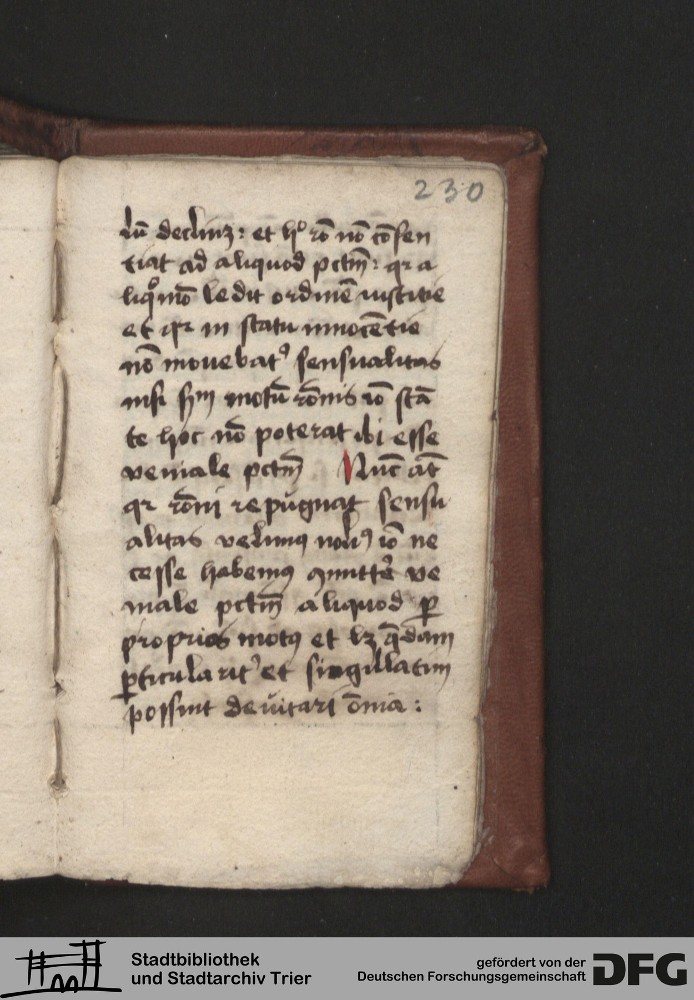 230
lū declinꝫ : et hꝰ rō nō cōsen
tiat ad aliquod pctm̄ : qr a
liqͦmō ledit ordinē iusticie
et qr in statu innocētie
nō mouebatᷣ sensualitas
nisi motū rōnis iō stā
te hoc nō poterat ibi esse
veniale pctm̄ Nūc āt
qr rōni repugnat sensu
alitas velimꝰ nolimꝰ iō ne
cesse habemꝰ ve
niale pctm̄ aliquod ꝑ
proprios motꝰ et lꝫ q̄dam
ꝑticularitᷣ et singillatim
possint deuitari om̄ia :
Stadtbibliothek
und Stadtarchiv Trier
gefördert von der
Deutschen Forschungsgemeinschaft
DFG